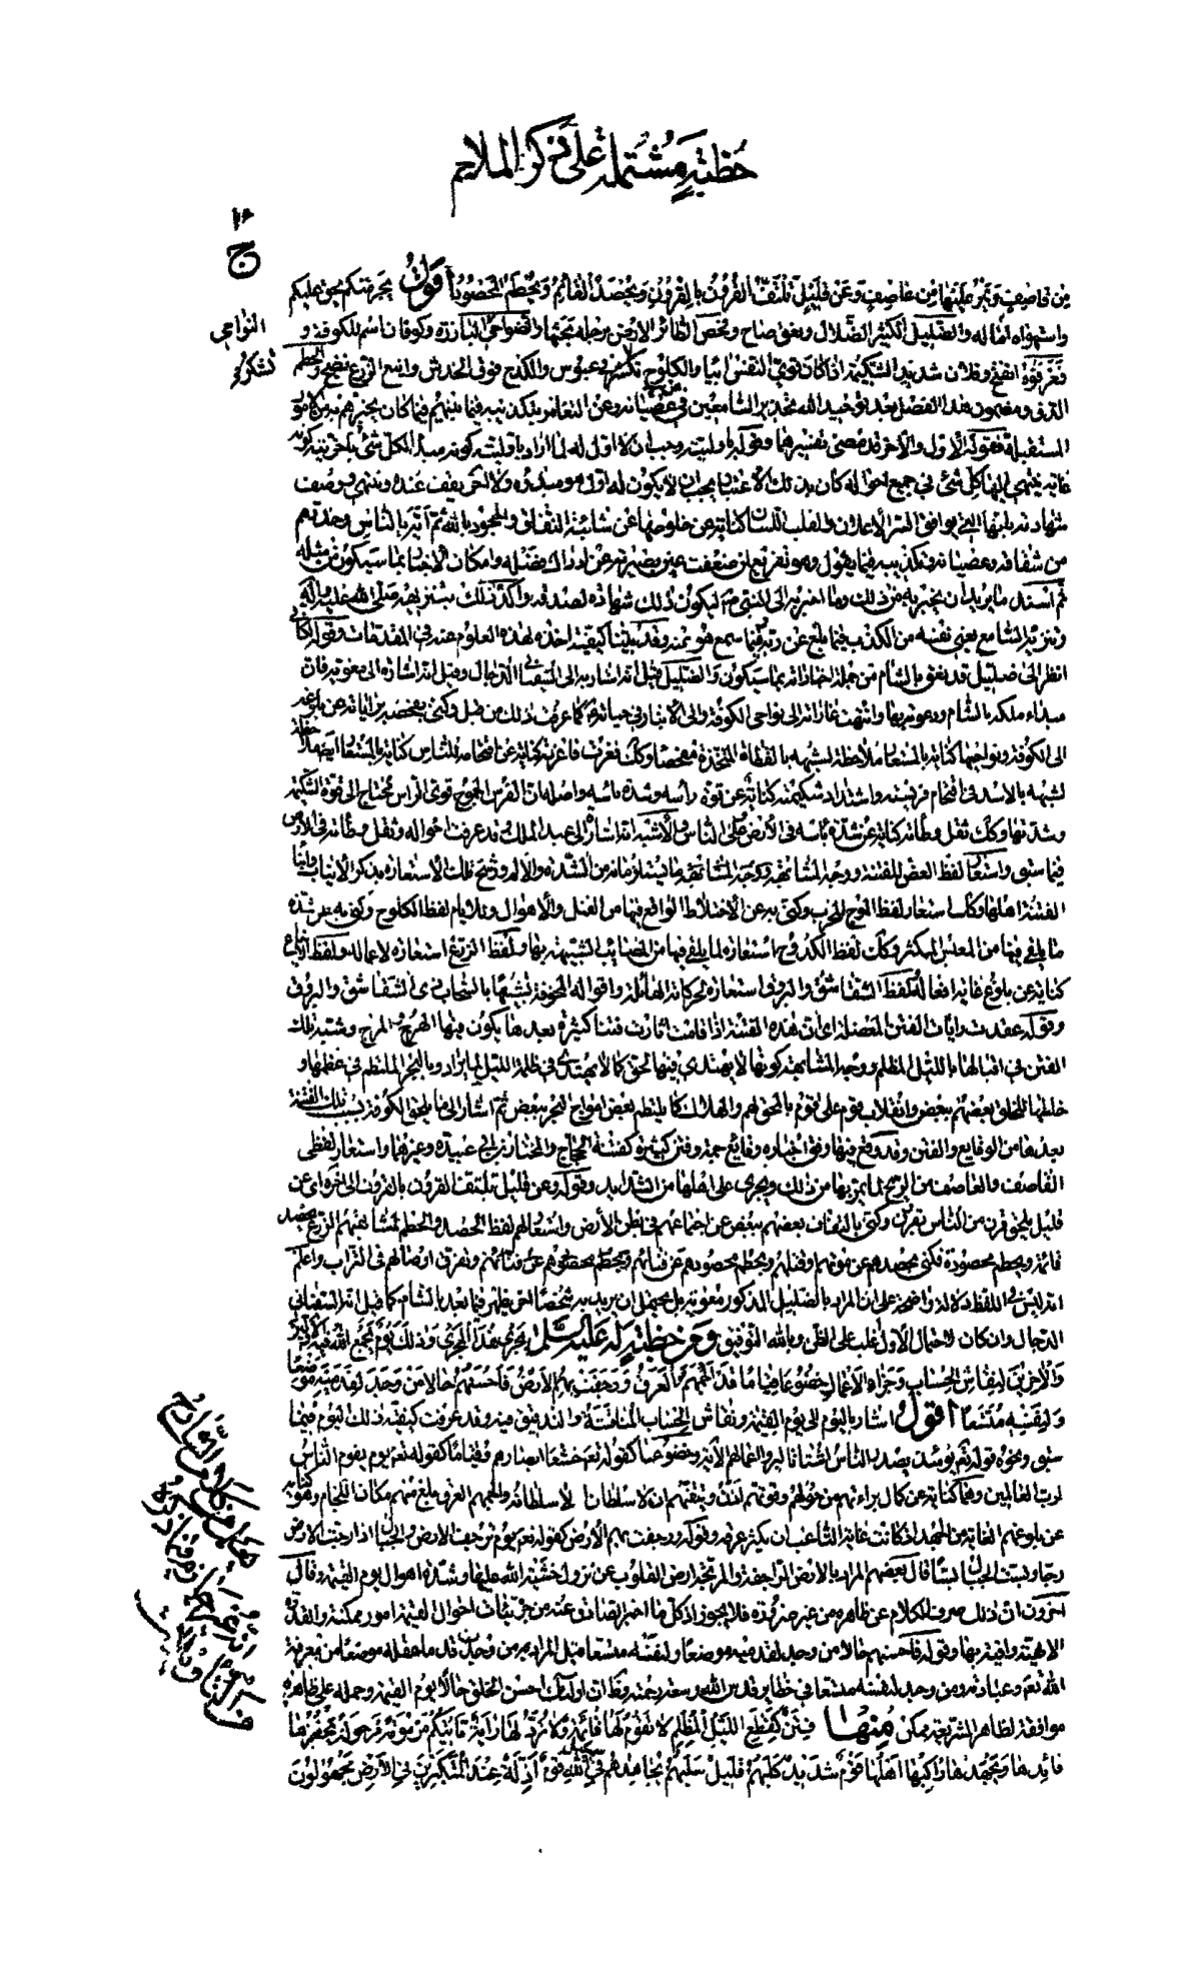 خطبة مشتملة على ذكر الملاحم
١٦
ج
من قاصف ويمر عليها من عاصف وعن قليل تلتف القرون بالقرون ويحصد القائم ويحطم المحصود أقول يجرمنكم يحق عليكم
واستهواه أماله والضليل الكثير الضلال ونعق صاح وفحص الطائر الأرض برجله بحثها والضواحي البارزة وكوفان اسم للكوفة و
النواحي
فغرفوه انفتح وفلان شديد الشكيمة اذا كان قوي النفس أبيا والكلوح تكشر في عبوس والكدح فوق الخدش واينع الزرع نضج والحطم
الدق ومفهوم هذا الفصل بعد توحيد الله تحذير السامعين في عصيانه وعن التغامز بتكذيبه فيما بينهم فيما كان يخبرهم به من الأمور
المستقبلة فقوله الأول والآخر قد مضى تفسيرهما وقوله باوليته وجب ان لا اول له لما اراد باوليته كونه مبدأ لكل شيء وبآخريته كونه
غاية ينتهي اليها كل شيء في جميع احواله كان بذلك الاعتبار يجب ان لا يكون له اول هو مبدؤه ولا آخر يقف عنده وينتهي ووصف
شهادته بانها التي يوافق السر الاعلان والقلب اللسان كناية عن خلوصها عن شائبة النفاق والجحود بالله ثم أيه بالناس وحذرهم
من شقاقه وعصيانه وتكذيبه فيما يقول وهو تقريع لمن ضعفت عين بصيرته عن ادراك فضله وامكان الاخبار بما سيكون من مثله
ثم اسند ما يريد ان يخبر به من ذلك وما اخبر به الى النبي ص ليكون ذلك شهادة لصدقه وأكد ذلك بتنزيهه صلى الله عليه وآله
وتنزيه السامع يعني نفسه من الكذب فيما بلغ عن ربه وفيما سمع هو عنه وقد بينا كيفية اخذه لهذه العلوم عنه في المقدمات وقوله لكأني
انظر الى ضليل قد نعق بالشام من جملة اخباراته بما سيكون والضليل قيل انه اشار به الى السفياني الدجال وقيل انه اشارة الى معوية فان
مبداء ملكه بالشام ودعوته بها وانتهت غاراته الى نواحي الكوفة والى الانبار في حياته ع كما عرفت ذلك من قبل وكنى بفحصه براياته عن بلوغه
الى الكوفة ونواحيها كناية بالمستعار ملاحظة لشبهه بالقطاة المتخذة مفحصا وكذلك فغرت فاغرته كناية عن اقتحامه للناس كناية بالمستعار ايضا ملاحظة
لشبهه بالاسد في اقتحام فريسته واشتداد شكيمته كناية عن قوة رأسه وشدة بأسه واصله ان الفرس الجموح قوي الرأس محتاج الى قوة الشكيمة
وشدتها وكذلك ثقل وطأته كناية عن شدة بأسه في الأرض على الناس والأشبه انه اشارة الى عبد الملك وقد عرفت احواله وثقل وطأته في الارض
فيما سبق واستعار لفظ العض للفتنة ووجه المشابهة ما يستلزمانه من الشدة والالم ورشح تلك الاستعارة بذكر الانياب وابنا
الفتنة اهلها وكذا استعار لفظ الموج للحرب وكنى به عن الاختلاط الواقع فيها من القتل والأهوال وللأيام لفظ الكلوح وكنى به عن شدة
ما يلقى فيها من العبس المكثر وكذلك لفظ الكدوح استعارة لما يلقى فيها من المصائب الشبيهة بها ولفظ الزرع استعارة لاعماله ولفظ ايناع
كناية عن بلوغ غاية افعاله ولفظ الشقاشق والبروق استعارة لحركاته الهائلة واقواله المخوفة تشبيها بالسحاب ذي الشقاشق والبروق
وقوله عقدت رايات الفتن المعضلة اي ان هذه الفتنة اذا قامت اثارت فتنا كثيرة بعدها يكون فيها الهرج والمرج وشبه تلك
الفتن في اقبالها بالليل المظلم ووجه المشابهة كونها لا يهتدى فيها لحق كما لا يهتدى في ظلمة الليل لما يراد وبالبحر الملتطم في عظمها و
خلطها للخلق بعضهم ببعض وانقلاب قوم على قوم بالمحق لهم والهلاك كما يلتطم بعض امواج البحر ببعض ثم اشار الى ما يلحق الكوفة بسبب تلك الفتنة
بعدها من الوقايع والفتن وقد وقع فيها وفق اخباره وقايع جمة وفتن كثيرة كفتنة الحجاج والمختار بن ابي عبيدة وغيرهما واستعار لفظي
القاصف والعاصف من الريح لما يمر بها من ذلك ويجري على اهلها من الشدايد وقوله وعن قليل تلتف القرون بالقرون الى آخره اي عن
قليل يلحق قرن من الناس بقرن وكنى بالتفاف بعضهم ببعض عن اجتماعهم في بطن الأرض واستعار لهم لفظ الحصد والحطم لمشابهتهم الزرع يحصد
قائمه ويحطم محصوده فكنى بحصدهم عن موتهم او قتلهم وبحطم محصودهم عن فنائهم وتفرق اوصالهم في التراب واعلم
انه ليس في اللفظ دلالة واضحة على ان المراد بالضليل المذكور معوية بل يحتمل ان يريد به شخصا آخر يظهر فيما بعد بالشام كما قيل انه السفياني
الدجال وان كان الاحتمال الأول اغلب على الظن وبالله التوفيق ومن خطبة له عليه السلم يجري هذا المجرى وذلك يوم يجمع الله فيه الأولين
والآخرين لنقاش الحساب وجزاء الأعمال خضوعا قياما قد الجمهم العرق ورجفت بهم الأرض فأحسنهم حالا من وجد لقدميه موضعا
ولنفسه متسعا أقول اشار باليوم الى يوم القيمة ونقاش الحساب المناقشة والتدقيق فيه وقد عرفت كيفية ذلك اليوم فيما
سبق ونحوه قوله تعالى يومئذ يصدر الناس اشتاتا ليروا اعمالهم الآية وخضوعا كقوله تعالى خشعا ابصارهم وقياما كقوله تعالى يوم يقوم الناس
لرب العالمين وهما كناية عن كمال براءتهم من حولهم وقوتهم اذن وتيقنهم ان لا سلطان الا سلطانه والجمهم العرق بلغ منهم مكان اللجام وهو كناية
عن بلوغهم الغاية من الجهد اذ كانت غاية التاعب ان يكثر عرقه وقوله ورجفت بهم الأرض كقوله تعالى يوم ترجف الأرض والجبال اذا رجت الارض
رجا وبست الجبال بسا قال بعضهم المراد بالارض الراجفة والمرتجة ارض القلوب عن نزول خشية الله عليها وشدة اهوال يوم القيمة وقال
آخرون ان ذلك صرف للكلام عن ظاهره من غير ضرورة فلا يجوز اذ كل ما اخبر الصادق عنه من جزئيات احوال القيمة امور ممكنة والقدرة
الالهية وافية بها وقوله فأحسنهم حالا من وجد لقدميه موضعا ولنفسه متسعا قيل المراد من وجد لقدم عقله موضعا من معرفة
الله تعالى وعبادته ومن وجد لنفسه متسعا في حظاير قدس الله وسعة رحمته وظاهر ان اولئك احسن الخلق حالا يوم القيمة وحمله على ظاهره
موافقة لظاهر الشريعة ممكن منها فتن كقطع الليل المظلم لا تقوم لها قائمة ولا ترد لها راية تأتيكم مزمومة مرحولة يحفزها
قائدها ويجهدها راكبها اهلها قوم شديد كلبهم قليل سلبهم يجاهدهم في سبيل الله قوم أذلة عند المتكبرين في الأرض مجهولون